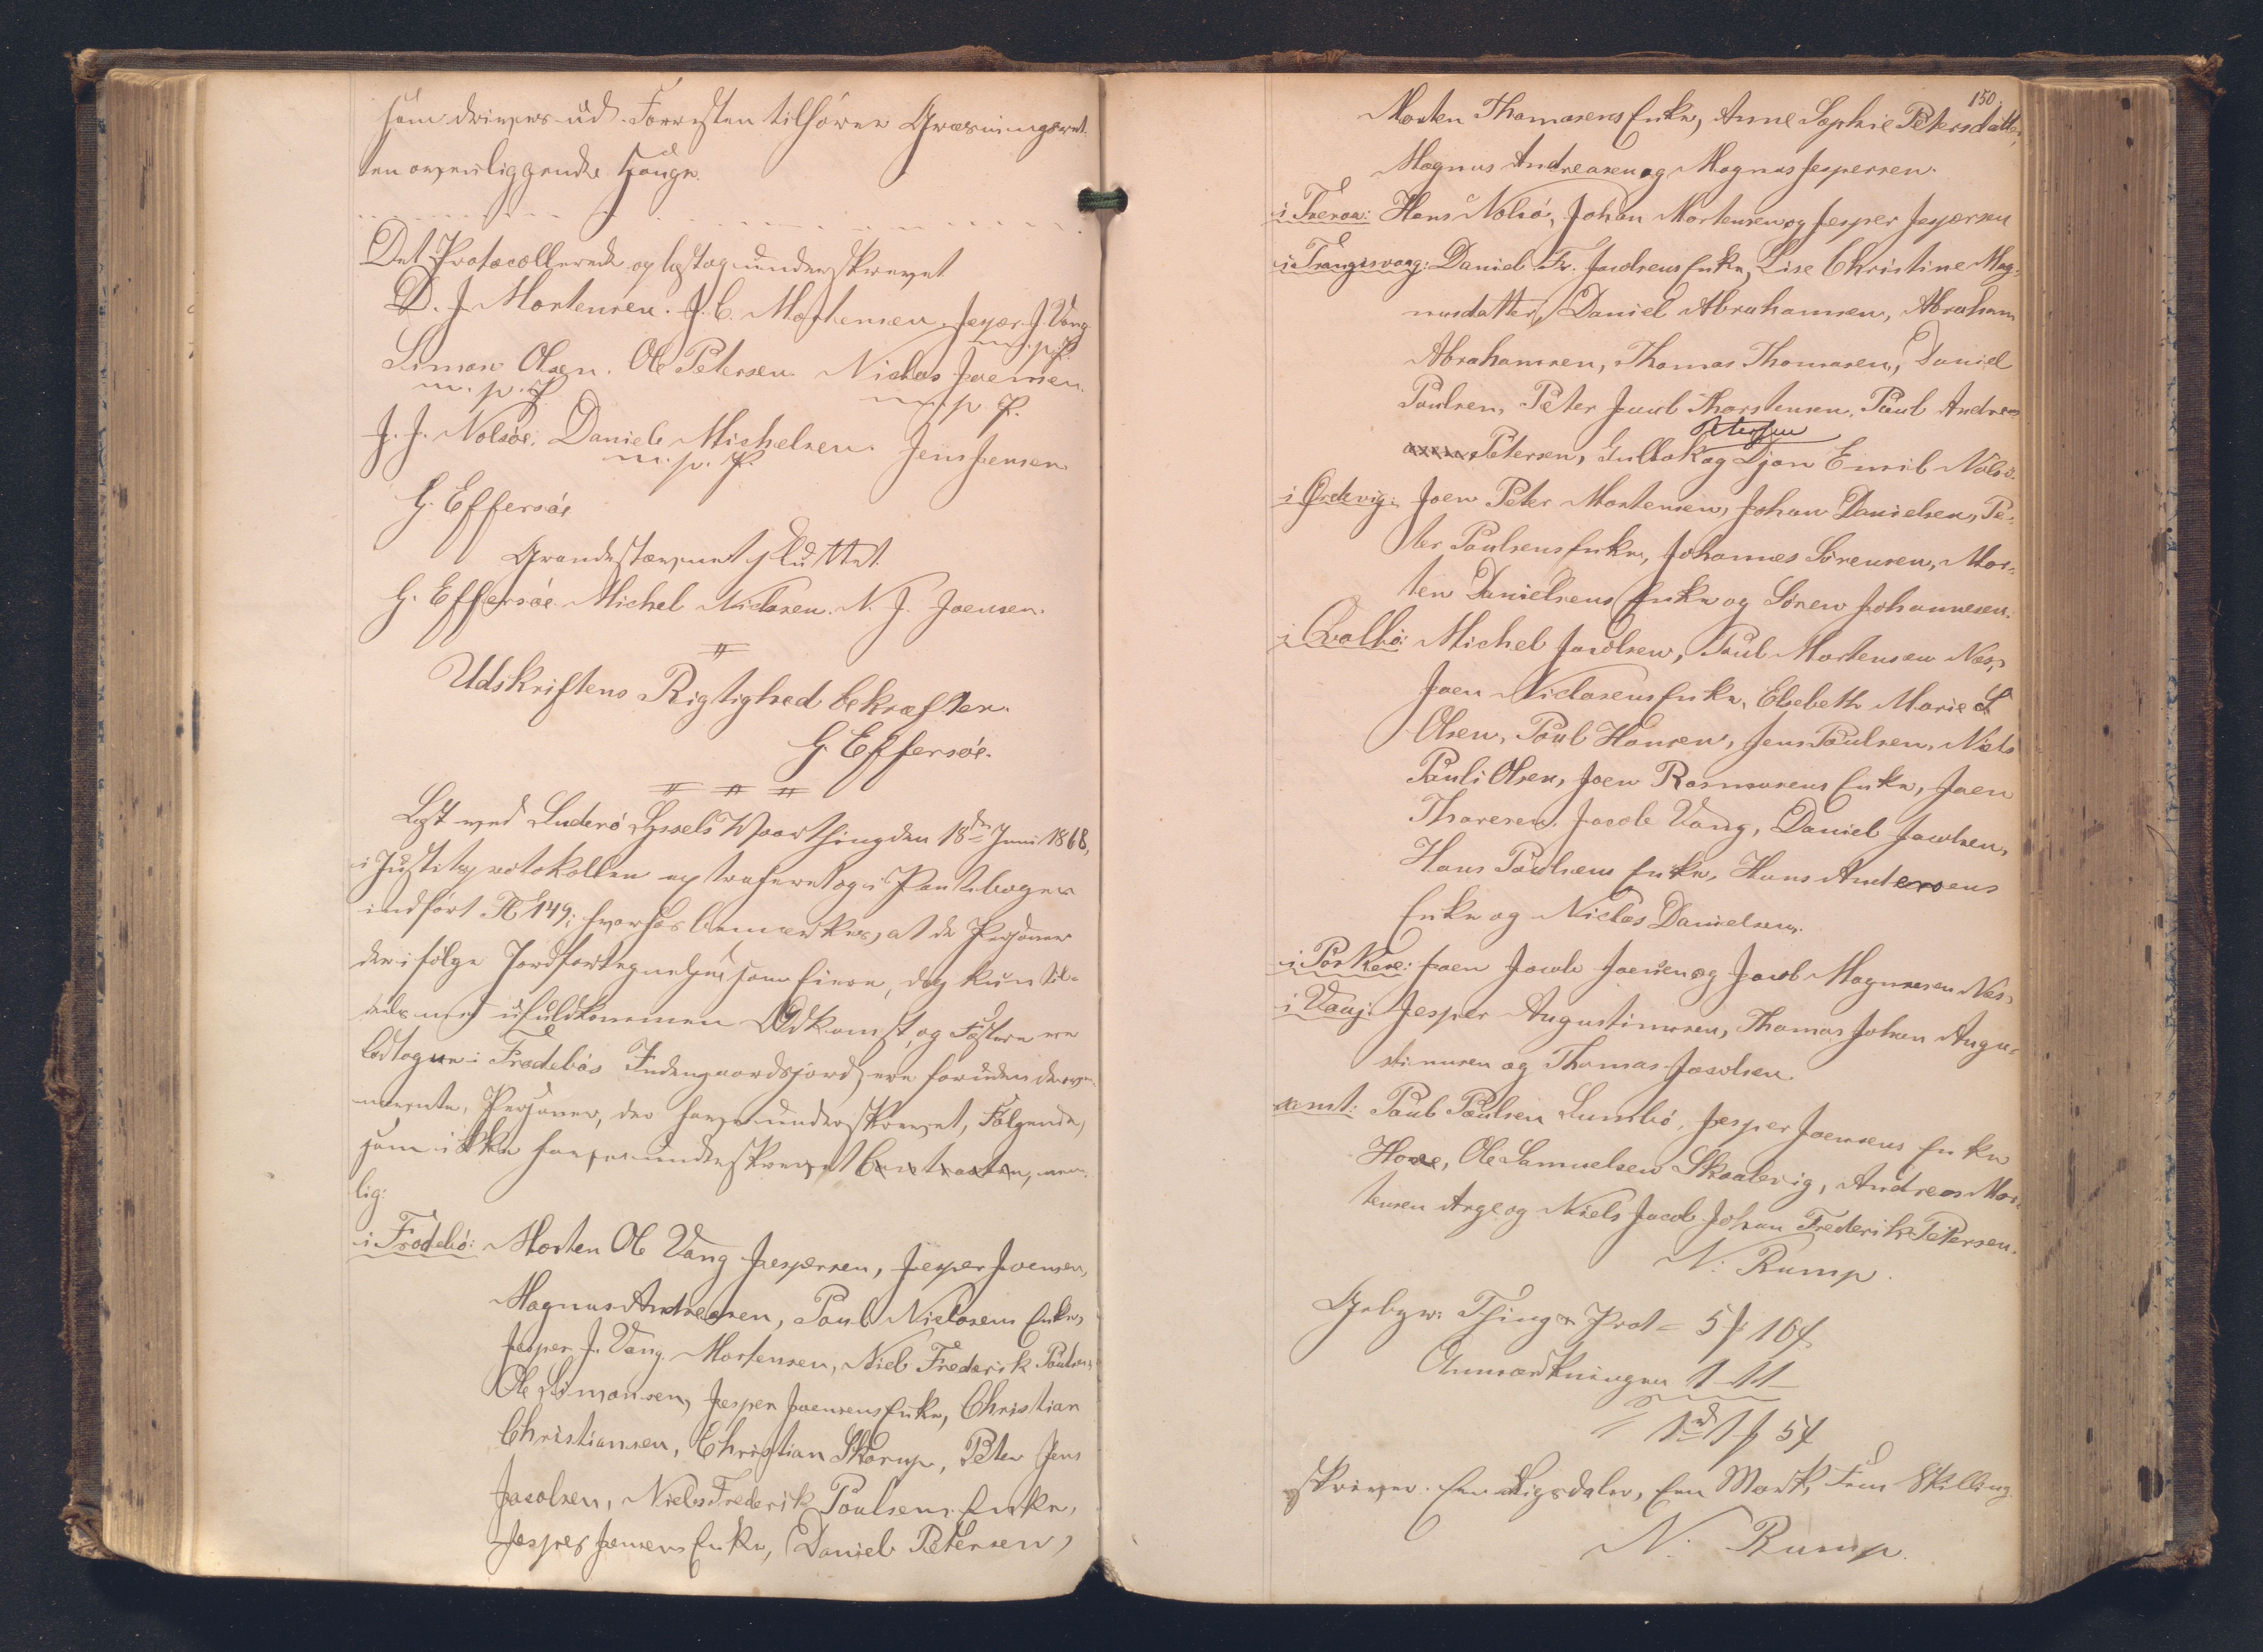 som drives ud. Forresten tilhører Græsningsret-
ten ovenliggende Hauge.
Det Protocollerede oplæst og underskrevet
D. J. Mortensen. J. C. Mortensen. Jesper J. Vang
m. p. P.
Simon Olsen. Ole Petersen. Niclas Joensen.
m. p. P. m. p. P.
J. J. Nolsøe. Daniel Michelsen. Jens Jensen
m. p. P.
G. Effersøe
Grandestævnet sluttet.
G. Effersøe. Michel Niclasen. N. J. Joensen.
Udskriftens Rigtighed bekræfter.
G. Effersøe.
Læst ved Suderø Syssels Vaarthing den 18de Juni 1868,
i Justitsprotokollen extraheret og i Pantebogen
indført 149; hvorhos bemærkes, at de Personer
der ifølge Jordfortegnelsen som Eiere, dog kun til-
dels med ufuldkommen Adkomst, og Fæstere ere
lodtagne i Frodebøs Indengaardsjord, ere foruden de oven-
nævnte, Personer, der have underskrevet, Følgende,
som ikke have underskrevet Contracten, nem-
lig:
i Frodebø: Morten Ole Vang Jespersen, Jesper Joensen,
Magnus Andreasen, Poul Niclasens Enke,
Jesper J. Vang Mortensen, Niels Frederik Poulsen,
Ole Simonsen, Jesper Joensens Enke, Christian
Christiansen, Christian Skorup, Peter Jens
Jacobsen, Niels Frederik Poulsens Enke,
Jesper Jensens Enke, Daniel Petersen,
150.
Morten Thomasens Enke, Anne Sophie Petersdatter,
Magnus Andreasen og Magnus Jespersen.
i Tveraa: Hans Nolsø, Johan Mortensen og Jesper Jespersen
i Trangisvaag: Daniel Fr. Jacobsens Enke, Lise Christine Mag-
nusdatter, Daniel Abrahamsen, Abraham
Abrahamsen, Thomas Thomasen, Daniel
Poulsen, Peter Jacob Thorstensen, Poul Andreas
Petersen
Petersen, Gullak og Djon Emil Nolsø.
i Ørdevig: Joen Peter Mortensen, Johan Danielsen, Pe-
ter Poulsens Enke, Johannes Sørensen, Mor-
ten Danielsens Enke og Søren Johannesen.
i Qvalbø: Michel Jacobsen, Poul Mortensen Næs,
Joen Niclasens Enke, Elsebeth Marie S.
Olsen, Poul Hansen, Jens Poulsen, Niels
Pauli Olsen, Joen Rasmusens Enke, Joen
Thoresen, Jacob Vang, Daniel Jacobsen,
Hans Poulsens Enke, Hans Andersens
Enke og Niclas Danielsen.
i Porkere: Joen Jacob Joensen og Jacob Magnusen Næs,
i Vaag: Jesper Augustinusen, Thomas Johan Augu-
stinusen og Thomas Jacobsen.
samt: Poul Poulsen Sumbø, Jesper Joensens Enke
Hove, Ole Samuelsen Skaalevig, Andreas Mor-
tensen Arge og Niels Jacob Johan Frederik Petersen.
N. Rump.
Gebyr: Thing Prot 5 10
Anmærkningen 1 11
1 1 5
skriver. Een Rigsdaler, Een Mark, Fem Skilling.
N. Rump.